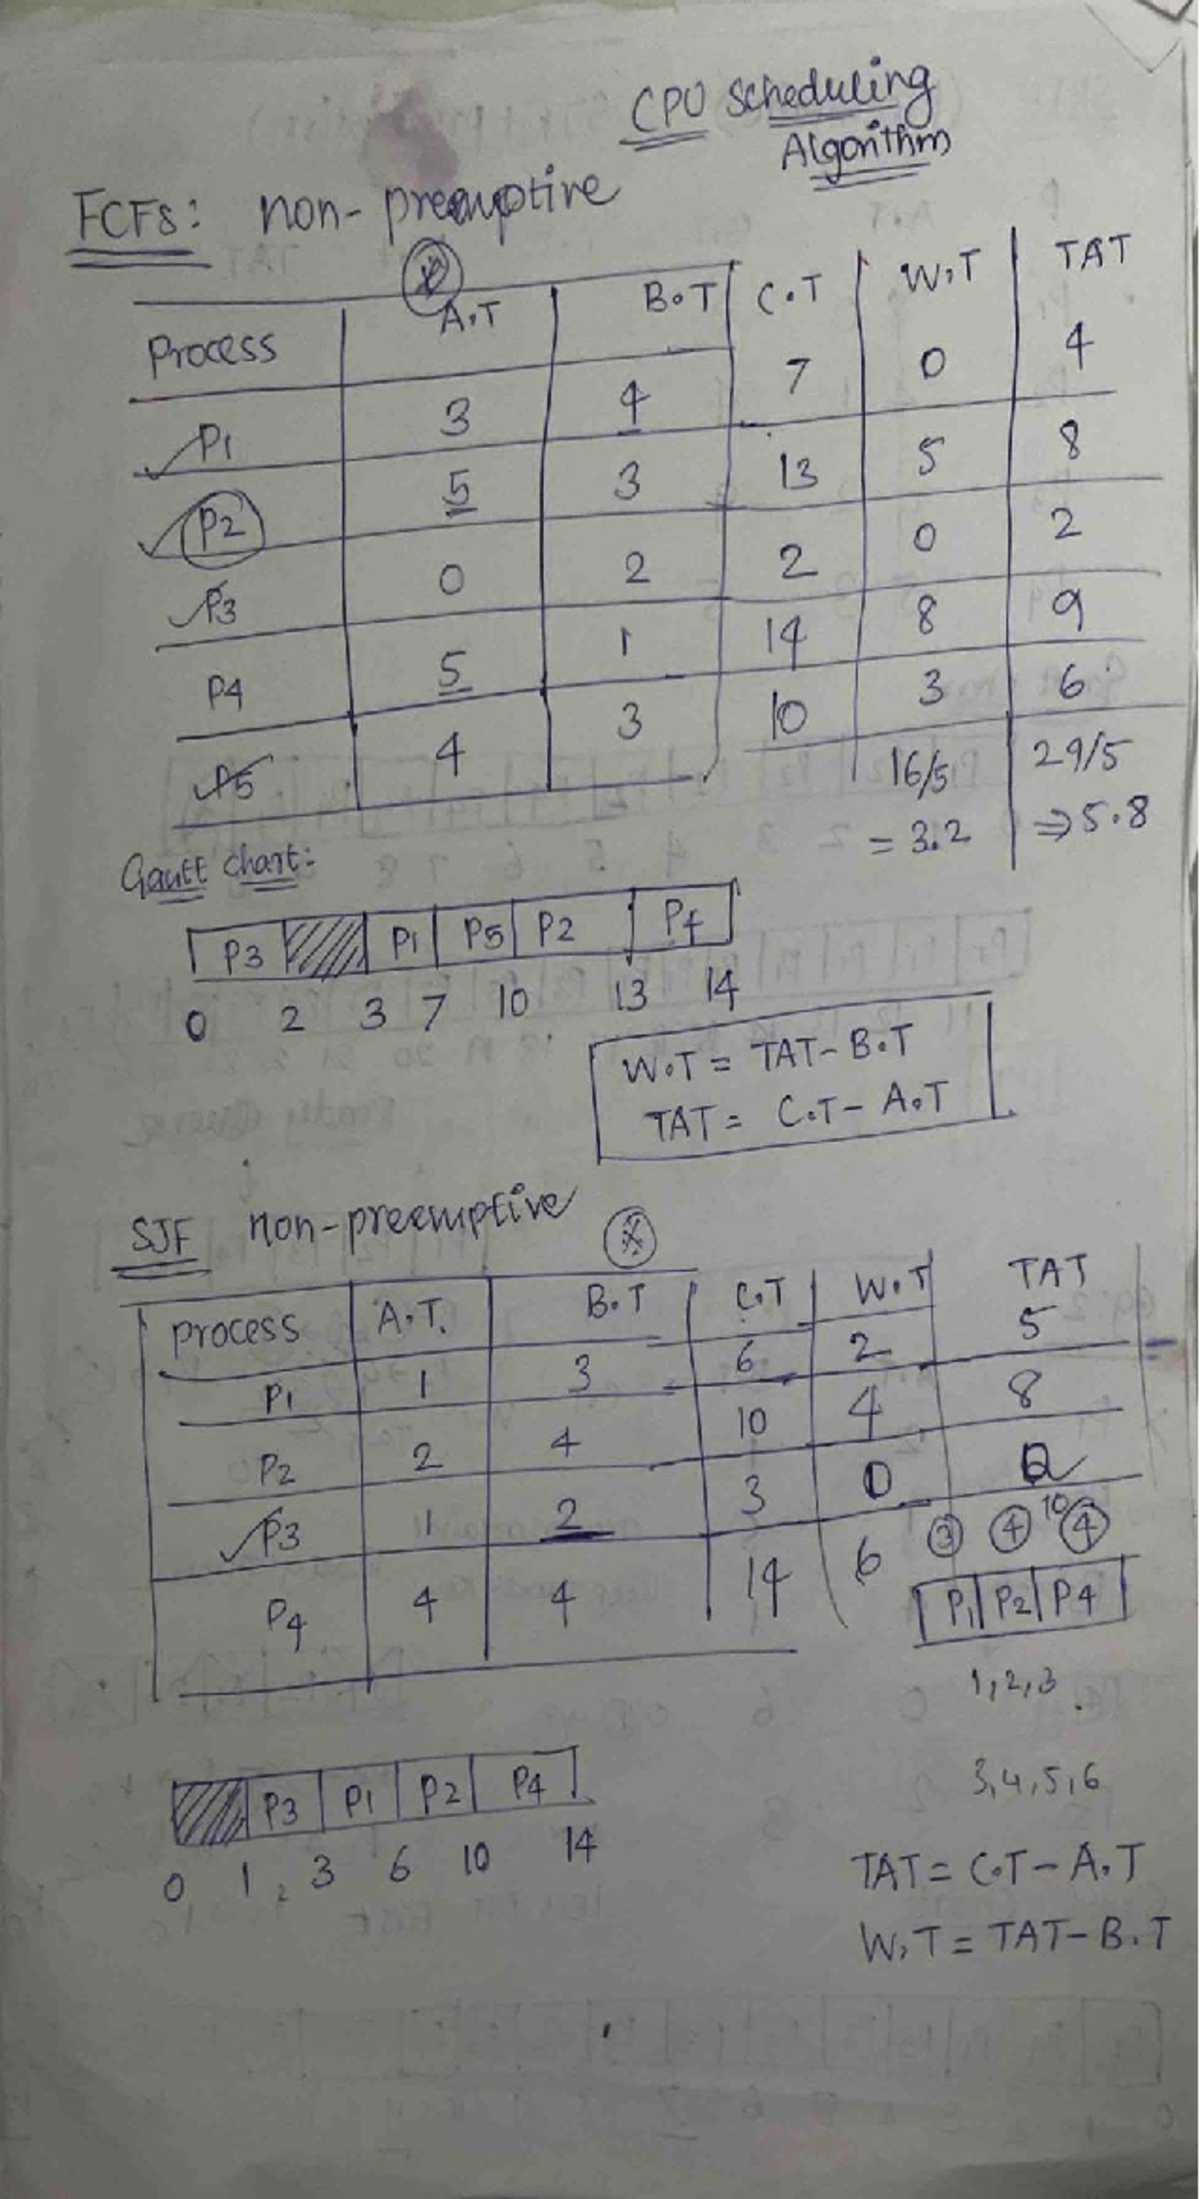 CPU Scheduling
Algorithm
FCFS: non-preemptive
Process A.T B.T C.T W.T TAT
P1 3 4 7 0 4
P2 5 3 13 5 8
P3 0 2 2 0 2
P4 5 1 14 8 9
P5 4 3 10 3 6
16/5 29/5
= 3.2 ⇒ 5.8
Gantt chart:
P3 P1 P5 P2 P4
0 2 3 7 10 13 14
W.T = TAT - B.T
TAT = C.T - A.T
SJF non-preemptive
Process A.T. B.T C.T W.T TAT
P1 1 3 6 2 5
P2 2 4 10 4 8
P3 1 2 3 0 2
P4 4 4 14 6 10
3 4 4
P1 P2 P4
1,2,3
3,4,5,6
P3 P1 P2 P4
0 1 2 3 6 10 14
TAT = C.T - A.T
W.T = TAT - B.T